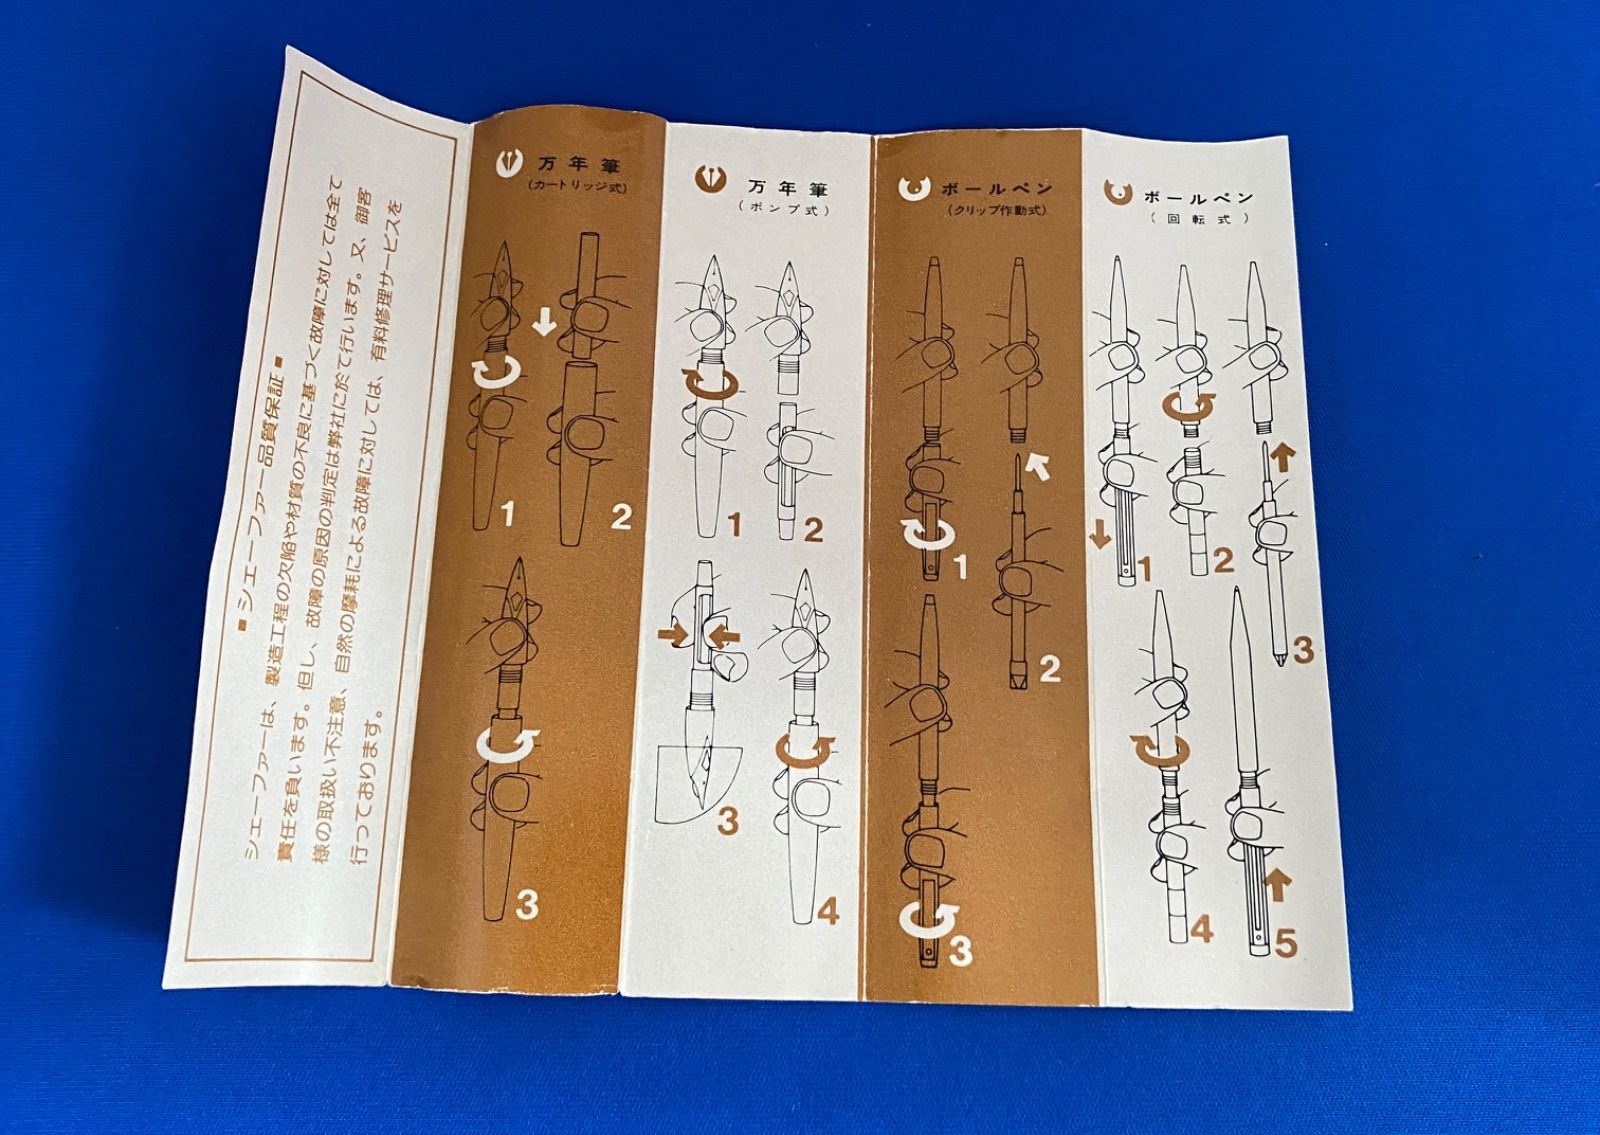 ■シェーファー品質保証■
シェーファーは、製造工程の欠陥や材質の不良に基づく故障に対しては全て
責任を負います。但し、故障の原因の判定は弊社に於て行います。又、御客
様の取扱い不注意、自然の摩耗による故障に対しては、有料修理サービスを
行っております。
万年筆
(カートリッジ式)
1
2
3
万年筆
(ポンプ式)
1
2
3
4
ボールペン
(クリップ作動式)
1
2
3
ボールペン
(回転式)
1
2
3
4
5